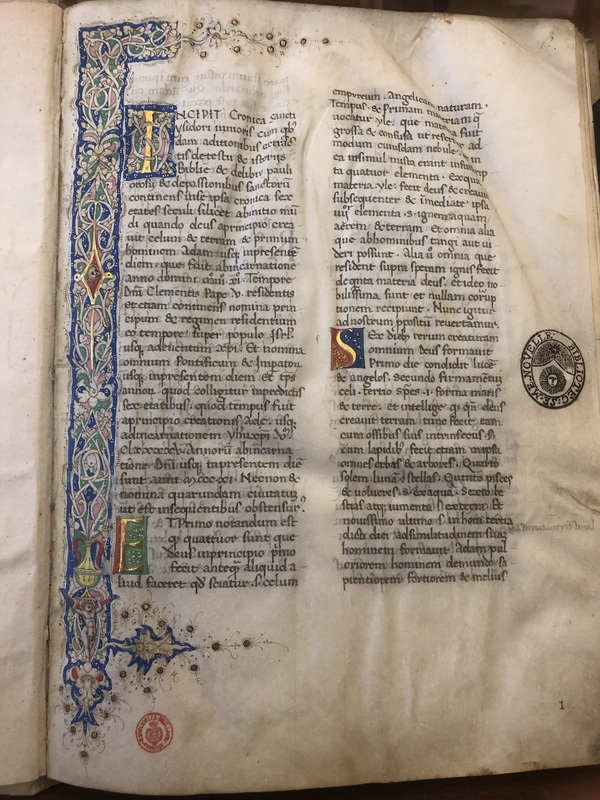 INCIPIT Cronica sancti
ysidori iunioris cum qbꝰ
dam aditionibus
Biblie & de libris pauli
orosij & de passionibus sanctorū
continens in se ipsa cronica sex
etates seculi silicet ab initio mū
di quando deus a principio crea
uit celum & terram & primum
hominem Adam usq̨ in presentē
diem que fuit ab incarnatione
anno domini Tempore
Dn̄i Clementis Pape V residentis
Et etiam continens nomina prin
cipum & regmen residentium
eo tempore super populo Isrl.
usq̨ ad Et nomina
omnium Pontificum & Impator̨
usq̨ in presentem diem et tp̄s
annor̨ quod colligitur in predictis
sex etatibus. quod tempus fuit
a principio creationis Ade usq̨
ad incarnationem
Annorū ab incarna
tione Dn̄i usq̨ in presentem diē
sunt anni Necnon &
nomina quarundam ciuitatū
ut est in sequentibus
ET Primo notandum est
qꝫ quatuor sunt que
deus in principio pmo
fecit anteqꝫ aliquid a
liud faceret qd̄ sciatur s. celum
empyreum. Angelicam naturam.
Tempus. & Primam materiam q̄
uocatur yle. que materia fuit
grossa & confusa ut
modum cuiusdam nebule
ea insimul mista erant
ta quatuor elementa.
materia yle. fecit deus & creauit
subsequenter & imediate ipsa
elementa. s. ignem aquam
aērem. & terram. et omnia alia
que ab hominibus tangi aut ui
deri possunt. Alia ū omnia que
resident supra speram ignis fecit
de qnta materia deus. et ideo no
bilissima sunt et nullam corup
tionem recipiunt. Nunc igitur
ad nostrum positū reuertamur.
SEx dieb; rerum creaturam
omnium deus formauit
Primo die condidit lucē
& angelos. Secundo firmamētū
celi. tertio spēs. s. forma maris
& terre. et intellige qꝫ qn̄ deus
creauit terram tunc fecit eam
cum ossibus suis intrinsecus s.
cum lapidib; fecit etiam in ipsa
omnes erbas & arbores. Quarto
solem lunā & stellas. Quinto pisces
& uolucres. s. ex aqua. Sexto be
stias atq̨ iumenta s. ex terra. Et
nouissimo ultimo s. in hora tertia
dicte diei ad similitudinem suaȝ
hominem formauit Adam pul
criorem hominem de mundo. sa
pientiorem fortiorem & melius
S. M. E. NOVELLE. BIBLIOTEC.
1